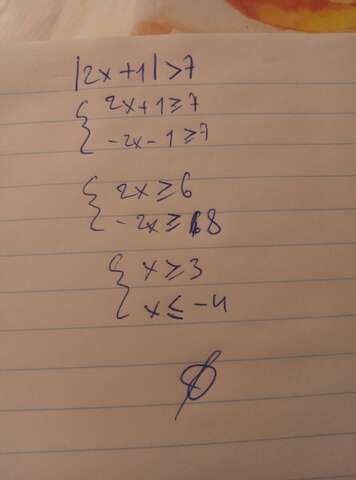 |2x+1|>7
{ 2x+1≥7
-2x-1≥7
{ 2x≥6
-2x≥8
{ x≥3
x≤-4
∅